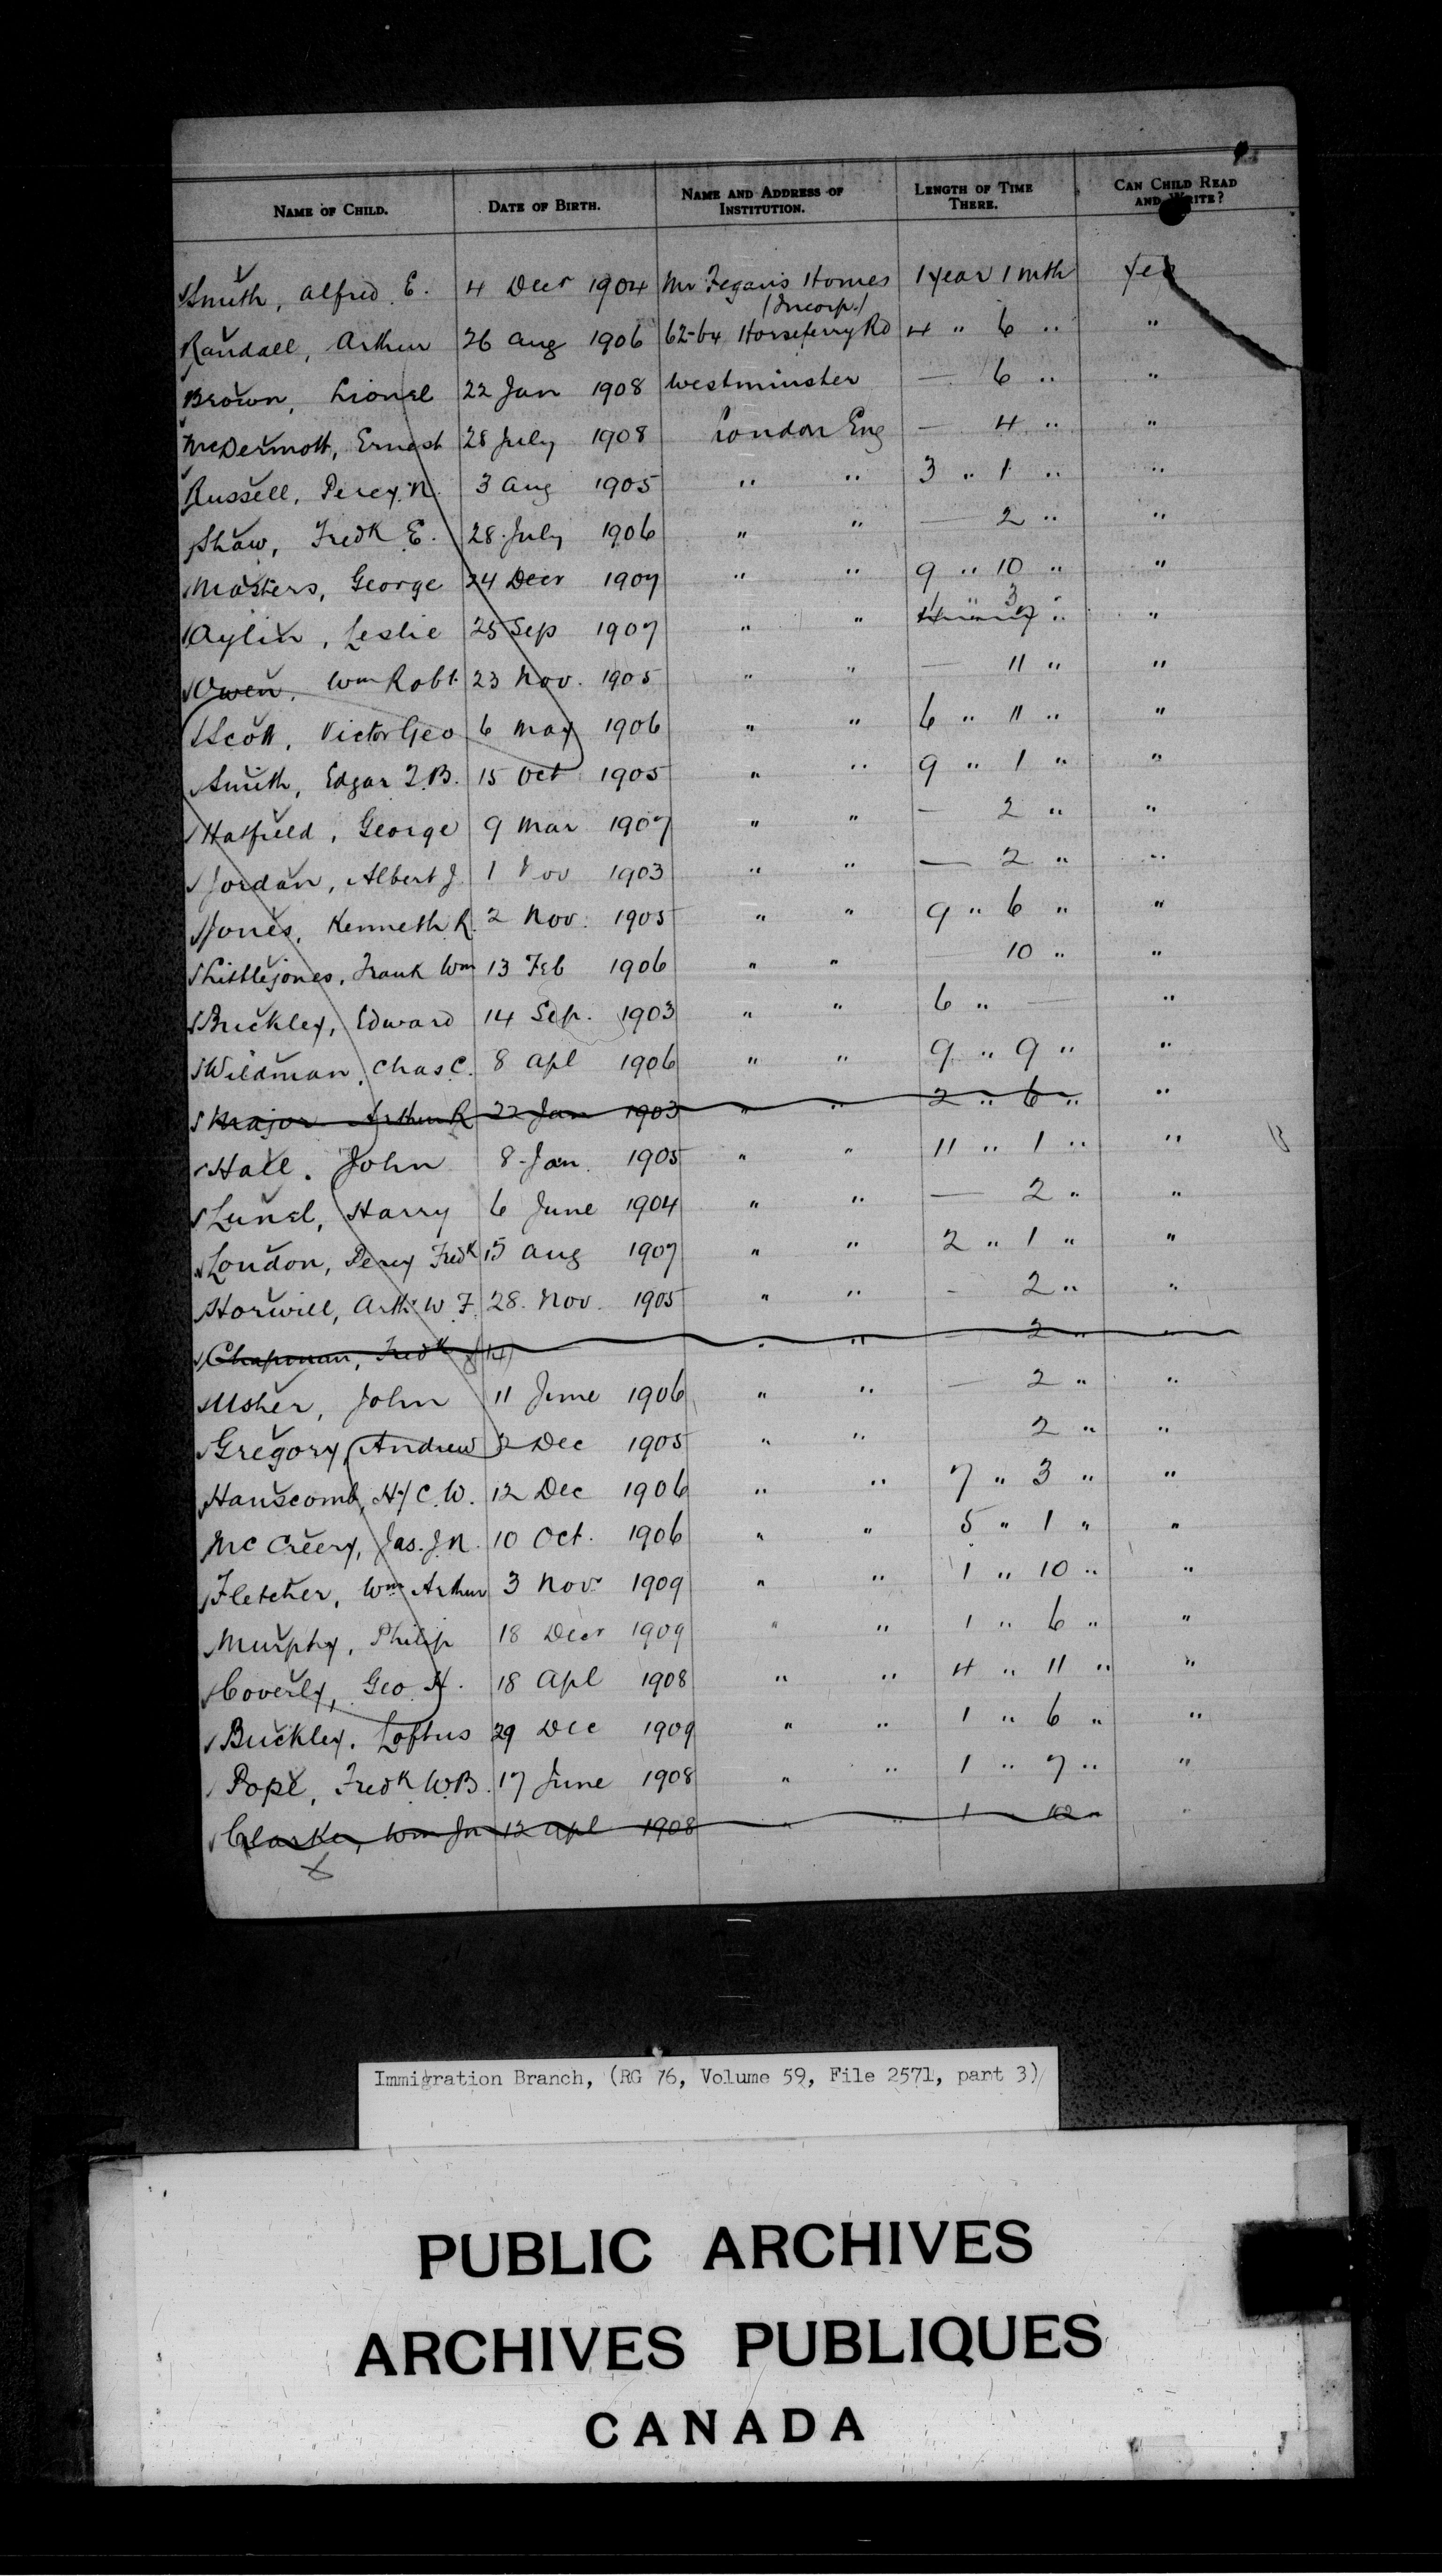 NAME OF CHILD. DATE OF BIRTH. NAME AND ADDRESS OF INSTITUTION. LENGTH OF TIME THERE. CAN CHILD READ AND WRITE?
Smith, Alfred E. 4 Decr 1904 Mr Fegan's Homes 1 year 1 mth Yes
(Incorp.)
Randall, Arthur 26 Aug 1906 62-64 Horseferry Rd 4 " 6 " "
Brown, Lionel 22 Jan 1908 Westminster — 6 " "
McDermott, Ernest 28 July 1908 London Eng — 4 " "
Russell, Percy N. 3 Aug 1905 " " 3 " 1 " "
Shaw, Fredk E. 28 July 1906 " " — 2 " "
Masters, George 24 Decr 1907 " " 9 " 10 " "
Aylin, Leslie 25 Sep 1907 " " " 3 " "
Owen, Wm Robt. 23 Nov. 1905 " " — 11 " "
Scott, Victor Geo 6 May 1906 " " 6 " 11 " "
Smith, Edgar T.B. 15 Oct 1905 " " 9 " 1 " "
Hatfield, George 9 Mar 1907 " " — 2 " "
Jordan, Albert J. 1 Nov 1903 " " — 2 " "
Jones, Kenneth R. 2 Nov. 1905 " " 9 " 6 " "
Littlejones, Frank Wm 13 Feb 1906 " " — 10 " "
Buckley, Edward 14 Sep. 1903 " " 6 " — "
Wildman, Chas C. 8 Apl 1906 " " 9 " 9 " "
Major Arthur R 22 Jan 1903 " " 2 " 6 " "
Hall. John 8 Jan. 1905 " " 11 " 1 " "
Lunel, Harry 6 June 1904 " " — 2 " "
London, Percy Fredk 15 Aug 1907 " " 2 " 1 " "
Horwill, Arthr W F. 28. Nov. 1905 " " - 2 " "
Chapman, Fredk J 14 " " — 2 " "
Usher, John 11 June 1906 " " — 2 " "
Gregory, Andrew 2 Dec 1905 " " 2 " "
Hanscomb, Hy C. W. 12 Dec 1906 " " 7 " 3 " "
McCreery, Jas. J. N. 10 Oct. 1906 " " 5 " 1 " "
Fletcher, Wm Arthur 3 Novr 1909 " " 1 " 10 " "
Murphy, Philip 18 Decr 1909 " " 1 " 6 " "
Coverly, Geo H. 18 Apl 1908 " " 4 " 11 " "
Buckley, Loftus 29 Dec 1909 " " 1 " 6 " "
Pope, Fredk W.B. 17 June 1908 " " 1 " 7 " "
Clarke, Wm Jn 12 Apl 1908 " " 1 " 10 " "
Immigration Branch, (RG 76, Volume 59, File 2571, part 3)
PUBLIC ARCHIVES
ARCHIVES PUBLIQUES
CANADA